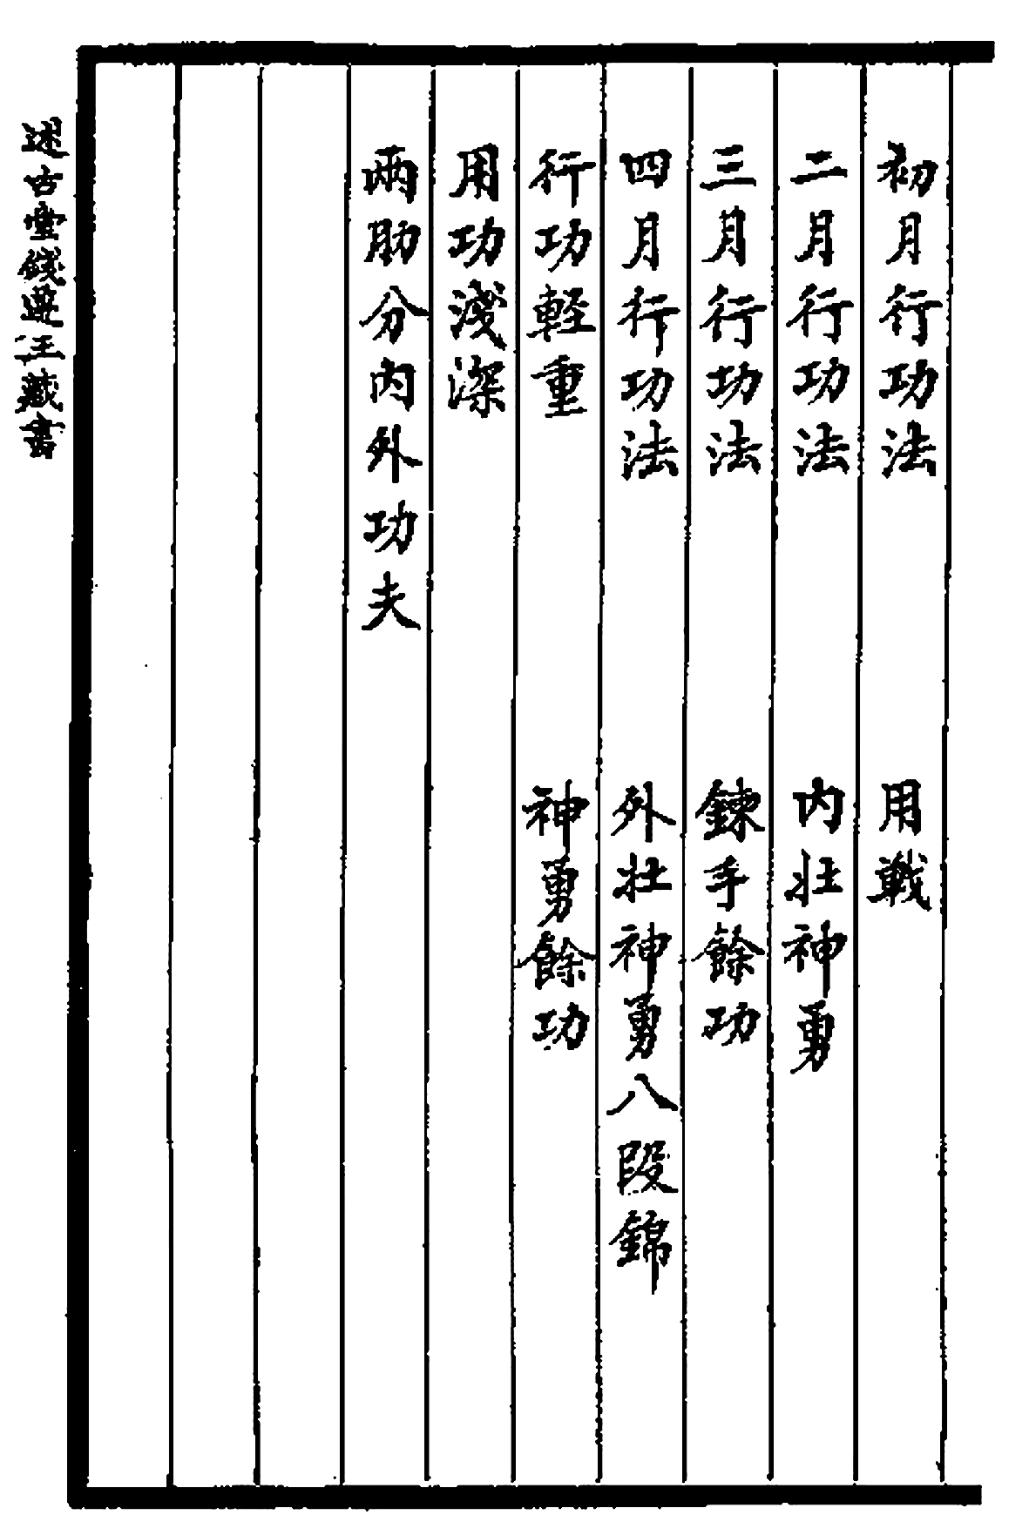 初月行功法　用戰
二月行功法　內壯神勇
三月行功法　鍊手餘功
四月行功法　外壯神勇八段錦
行功軽重　神勇餘功
用功淺深
兩肋分內外功夫
述古堂錢遵王藏書